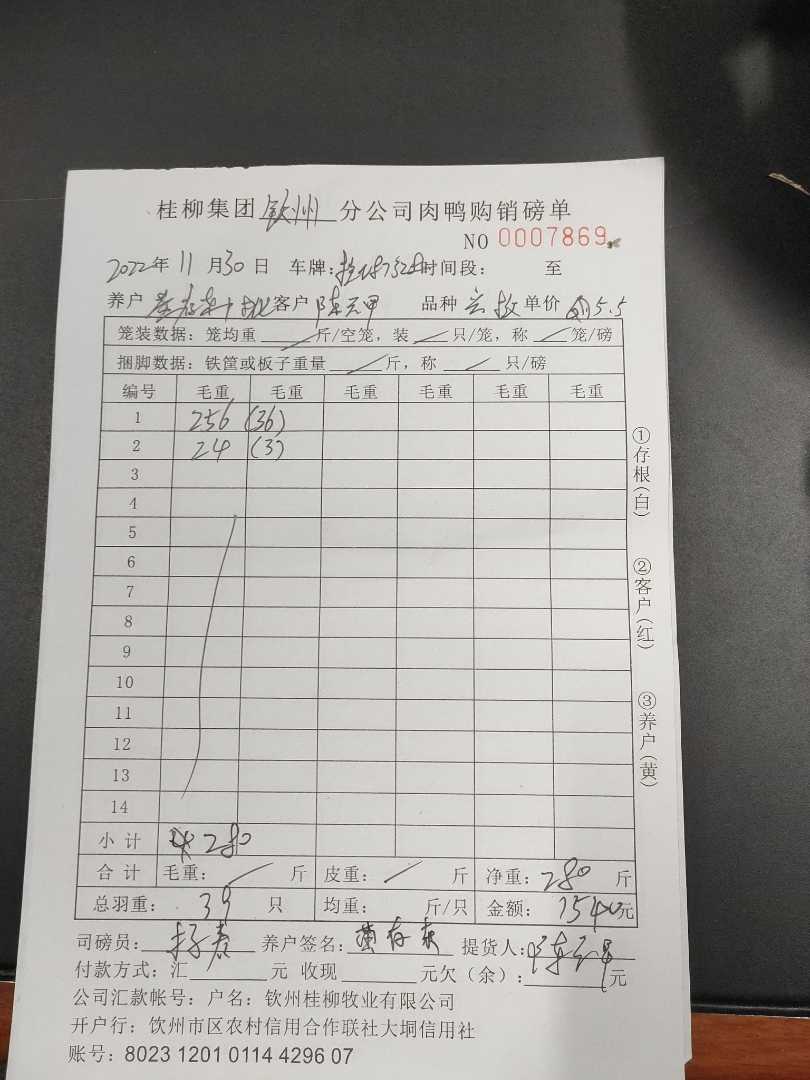 桂柳集团 钦州 分公司肉鸭购销磅单
NO 0007869
2022年 11月30日 车牌: 时间段: 至
养户 客户 陈元甲 品种 单价 5.5
笼装数据: 笼均重 斤/空笼, 装 只/笼, 称 笼/磅
捆脚数据: 铁筐或板子重量 斤, 称 只/磅
编号 毛重 毛重 毛重 毛重 毛重 毛重
1 256 (36)
2 24 (3)
3
4
5
6
7
8
9
10
11
12
13
14
小计 280
合计 毛重: 斤 皮重: 斤 净重: 280 斤
总羽重: 39 只 均重: 斤/只 金额: 1540元
司磅员: 养户签名: 提货人:
付款方式: 汇 元 收现 元欠(余): 元
公司汇款帐号: 户名: 钦州桂柳牧业有限公司
开户行: 饮州市区农村信用合作联社大垌信用社
账号: 8023 1201 0114 4296 07
①存根(白)
②客户(红)
③养户(黄)